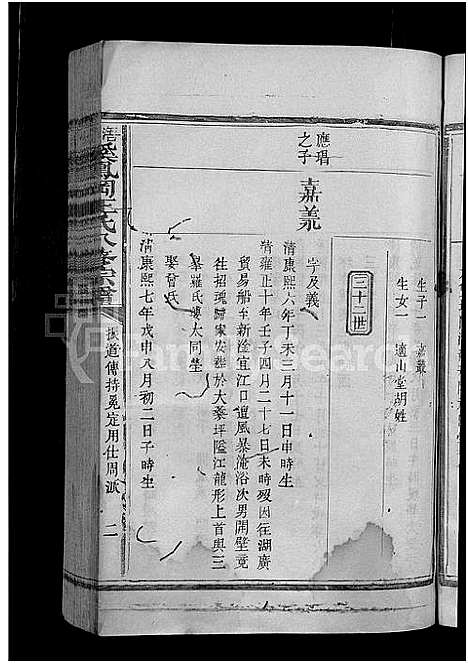 生子一 嘉叢
生女一 適山堂胡姓
三十二世
應琩之子
嘉義
字及義
清康熙六年丁未三月十一日申時生
清雍正十年壬子四月二十七日未時歿因往湖廣
貿易船至新淦宜江口遭風暴淹浴次男開壁竟
往招瑰歸家安葬於大蓼坪隘江龍形上首與三
舉羅氏
太同塋
娶曾氏
清康熙七年戊申八月初二日子時生
溪鳳岡王氏八修宗譜
振道傳持晃定用仕周派
二
FamilySearch